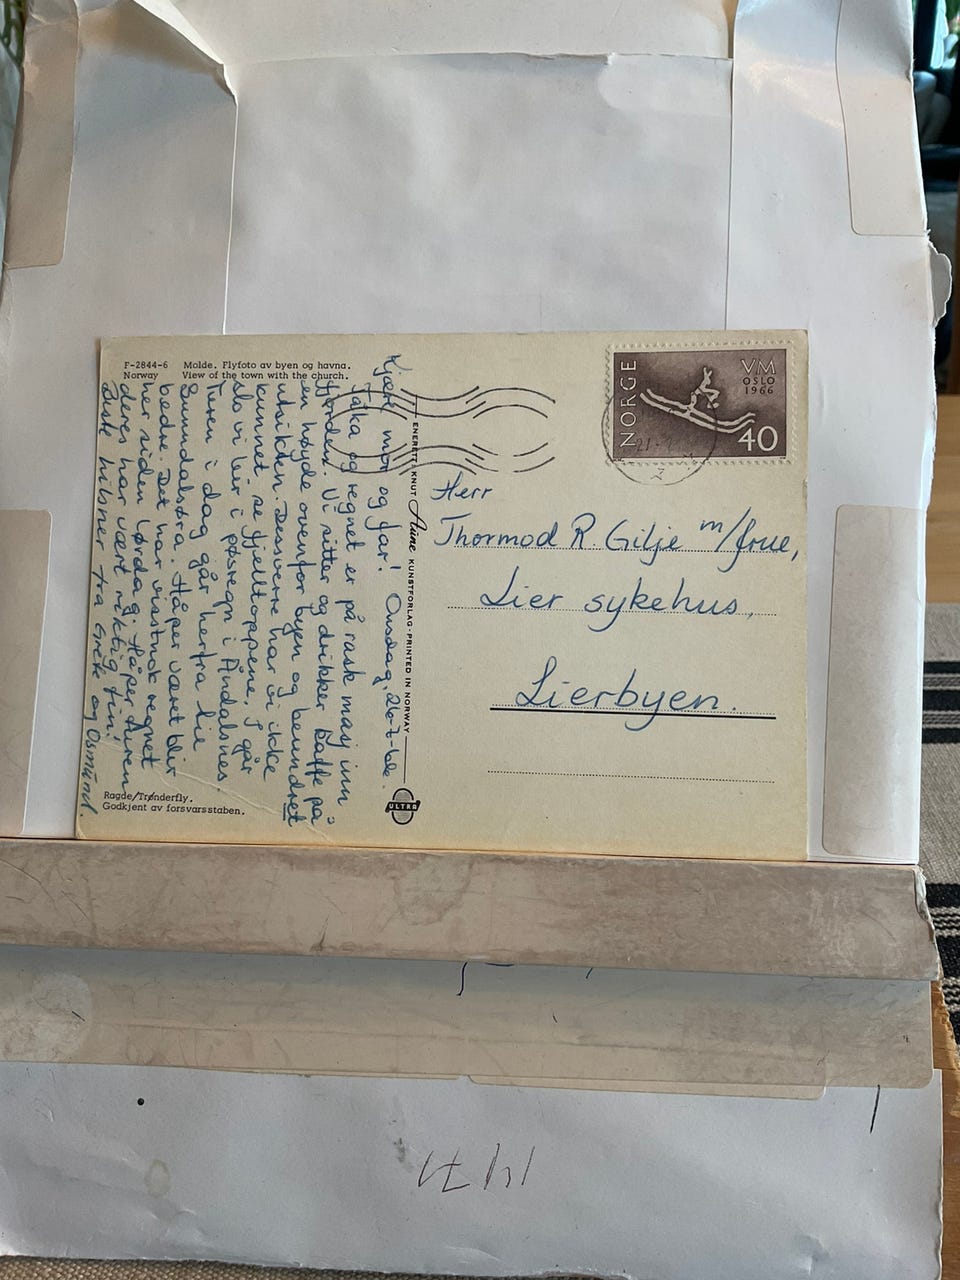 F-2844-6 Molde. Flyfoto av byen og havna.
Norway View of the town with the church.
Kjære mor og far! Onsdag, 20-7-66.
Tåka og regnet er på rask marsj inn
fjorden. Vi sitter og drikker kaffe på
en høyde ovenfor byen og beundret
utsikten. Dessverre har vi ikke
kunnet se fjelltoppene. I går
slo vi leir i pøsregn i Åndalsnes.
Turen i dag går herfra til
Sunndalsøra. Håper været blir
bedre. Det har visstnok regnet
her siden lørdag. Håper turen
deres har vært riktig fin!
hilsner fra Grete og Osmund.
Ragde/Trønderfly.
Godkjent av forsvarsstaben.
ENERETT: KNUT Aune KUNSTFORLAG - PRINTED IN NORWAY
ULTRA
NORGE
VM
OSLO
1966
40
Herr
Thormod R. Gilje m/frue,
Lier sykehus,
Lierbyen.